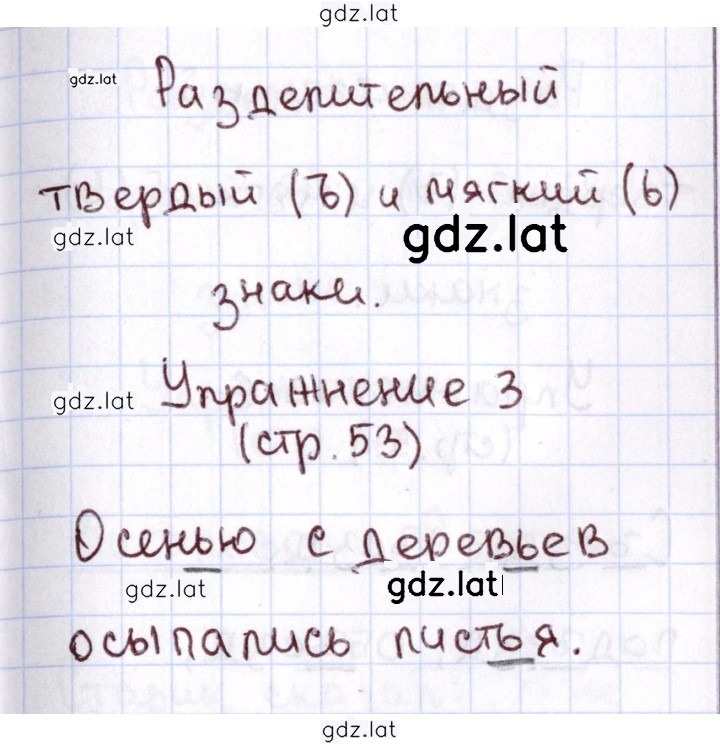 gdz.lat
gdz.lat
Разделительный
твердый (ъ) и мягкий (ь)
gdz.lat
gdz.lat
знаки.
gdz.lat
Упражнение 3
(стр. 53)
Осенью с деревьев
gdz.lat
gdz.lat
осыпались листья.
gdz.lat